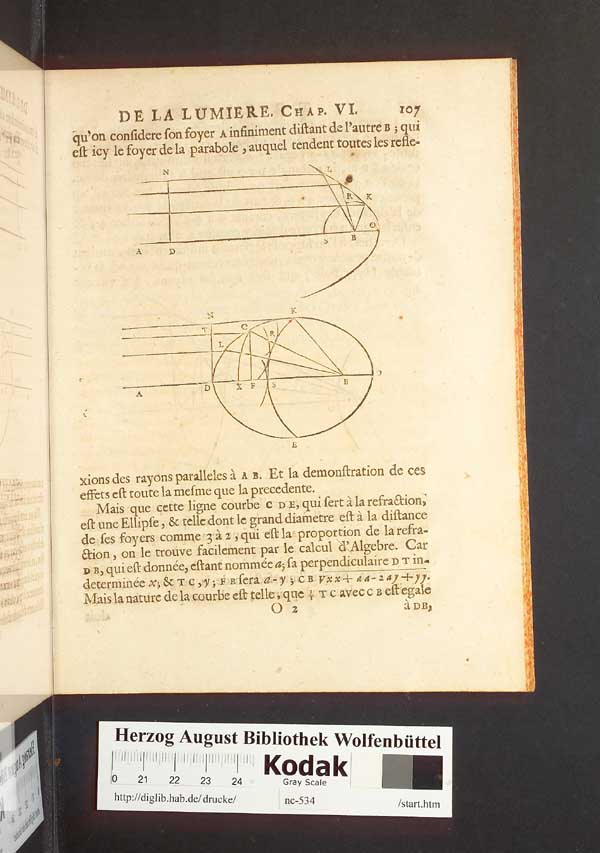 DE LA LUMIERE. CHAP. VI. 107
qu'on conſidere ſon foyer A infiniment diſtant de l'autre B ; qui
eſt icy le foyer de la parabole , auquel tendent toutes les refle-
N L
R K
O
A D S B
N K
T C R
L
A D X F S B
E
xions des rayons paralleles à A B. Et la demonſtration de ces
effets eſt toute la meſme que la precedente.
Mais que cette ligne courbe C D E, qui ſert à la refraction,
eſt une Ellipſe, & telle dont le grand diametre eſt à la diſtance
de ſes foyers comme 3 à 2, qui eſt la proportion de la refra-
ction, on le trouve facilement par le calcul d'Algebre. Car
D B, qui eſt donnée, eſtant nommée a; ſa perpendiculaire D T in-
determinée x; & T C, y; F B ſera a - y ; C B √xx + aa - 2ay + yy.
Mais la nature de la courbe eſt telle, que T C avec C B eſt egale
O 2 à DB,
Herzog August Bibliothek Wolfenbüttel
0 21 22 23 24
Kodak
Gray Scale
http://diglib.hab.de/drucke/ nc-534 /start.htm